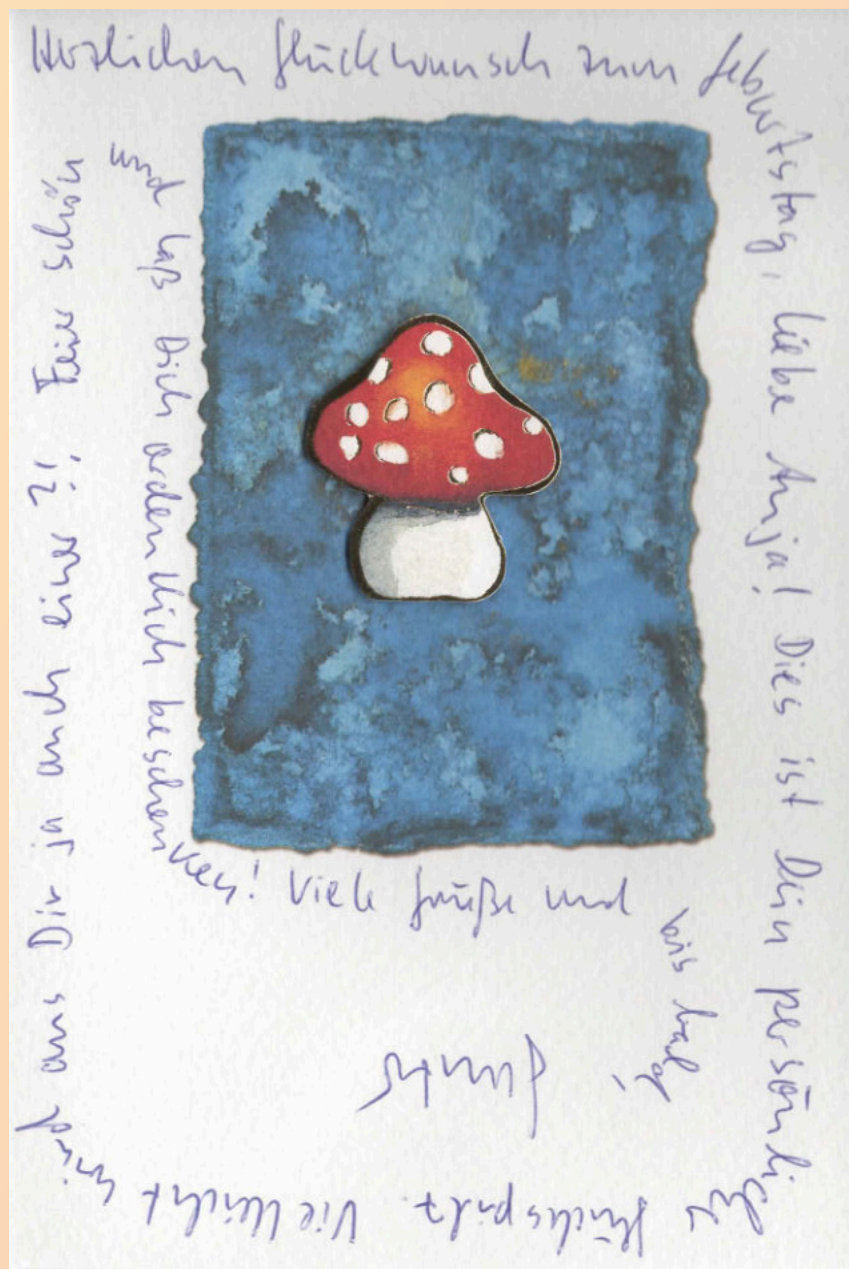 Herzlichen Glückwunsch zum Geburtstag, liebe Anja! Dies ist Dein persönlicher Glückspilz. Vielleicht wird aus Dir ja auch einer?! Feier schön
und laß Dich ordentlich beschenken! Viele Grüße und
bis bald,